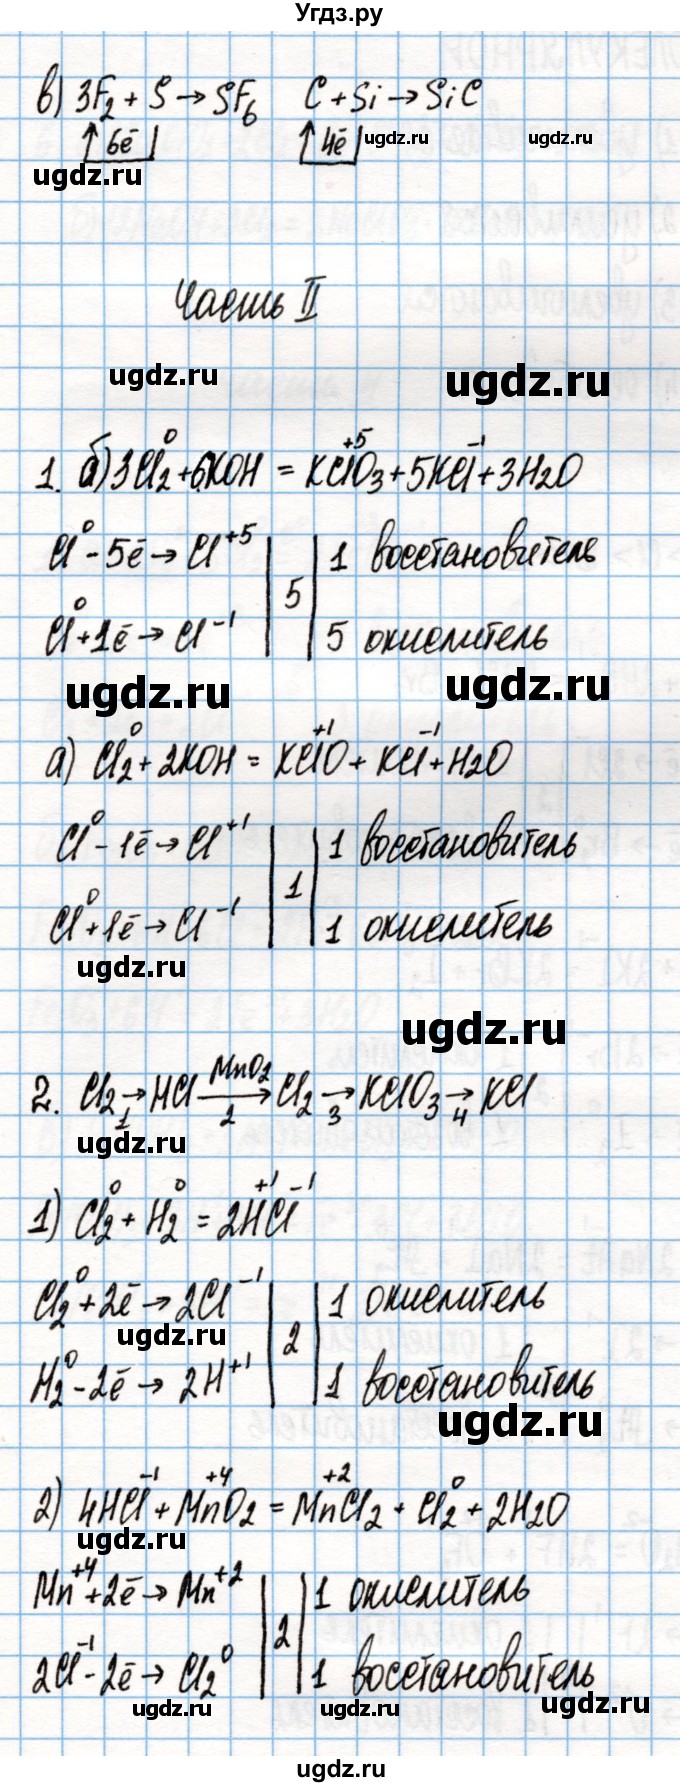 Угдз.ру
в) 3F₂ + S → SF₆   C + Si → SiC
↑ 6ē   ↑ 4ē
ugdz.ru ugdz.ru
ugdz.ru
Часть II
ugdz.ru ugdz.ru
1. б) 3Cl₂⁰ + 6KOH = KCl⁺⁵O₃ + 5KCl⁻¹ + 3H₂O
Cl⁰ - 5ē → Cl⁺⁵ | 5 | 1 восстановитель
Cl⁰ + 1ē → Cl⁻¹ | 5 окислитель
ugdz.ru ugdz.ru
а) Cl₂⁰ + 2KOH = KCl⁺¹O + KCl⁻¹ + H₂O
Cl⁰ - 1ē → Cl⁺¹ | 1 | 1 восстановитель
Cl⁰ + 1ē → Cl⁻¹ | 1 окислитель
ugdz.ru
ugdz.ru
2. Cl₂ →1 HCl →MnO₂ 2 Cl₂ →3 KClO₃ →4 KCl
1) Cl₂⁰ + H₂⁰ = 2H⁺¹Cl⁻¹
Cl₂⁰ + 2ē → 2Cl⁻¹ | 2 | 1 окислитель
ugdz.ru
H₂⁰ - 2ē → 2H⁺¹ | 1 восстановитель
ugdz.ru
2) 4HCl⁻¹ + Mn⁺⁴O₂ = Mn⁺²Cl₂ + Cl₂⁰ + 2H₂O
ugdz.ru
Mn⁺⁴ + 2ē → Mn⁺² | 2 | 1 окислитель
2Cl⁻¹ - 2ē → Cl₂⁰ | 1 восстановитель
ugdz.ru ugdz.ru ugdz.ru
ugdz.ru